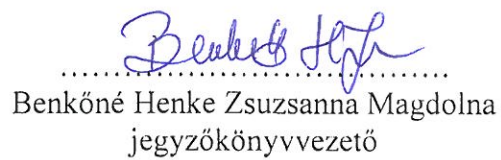 Benkőné Henke Zsuzsanna Magdolna
jegyzőkönyvvezető